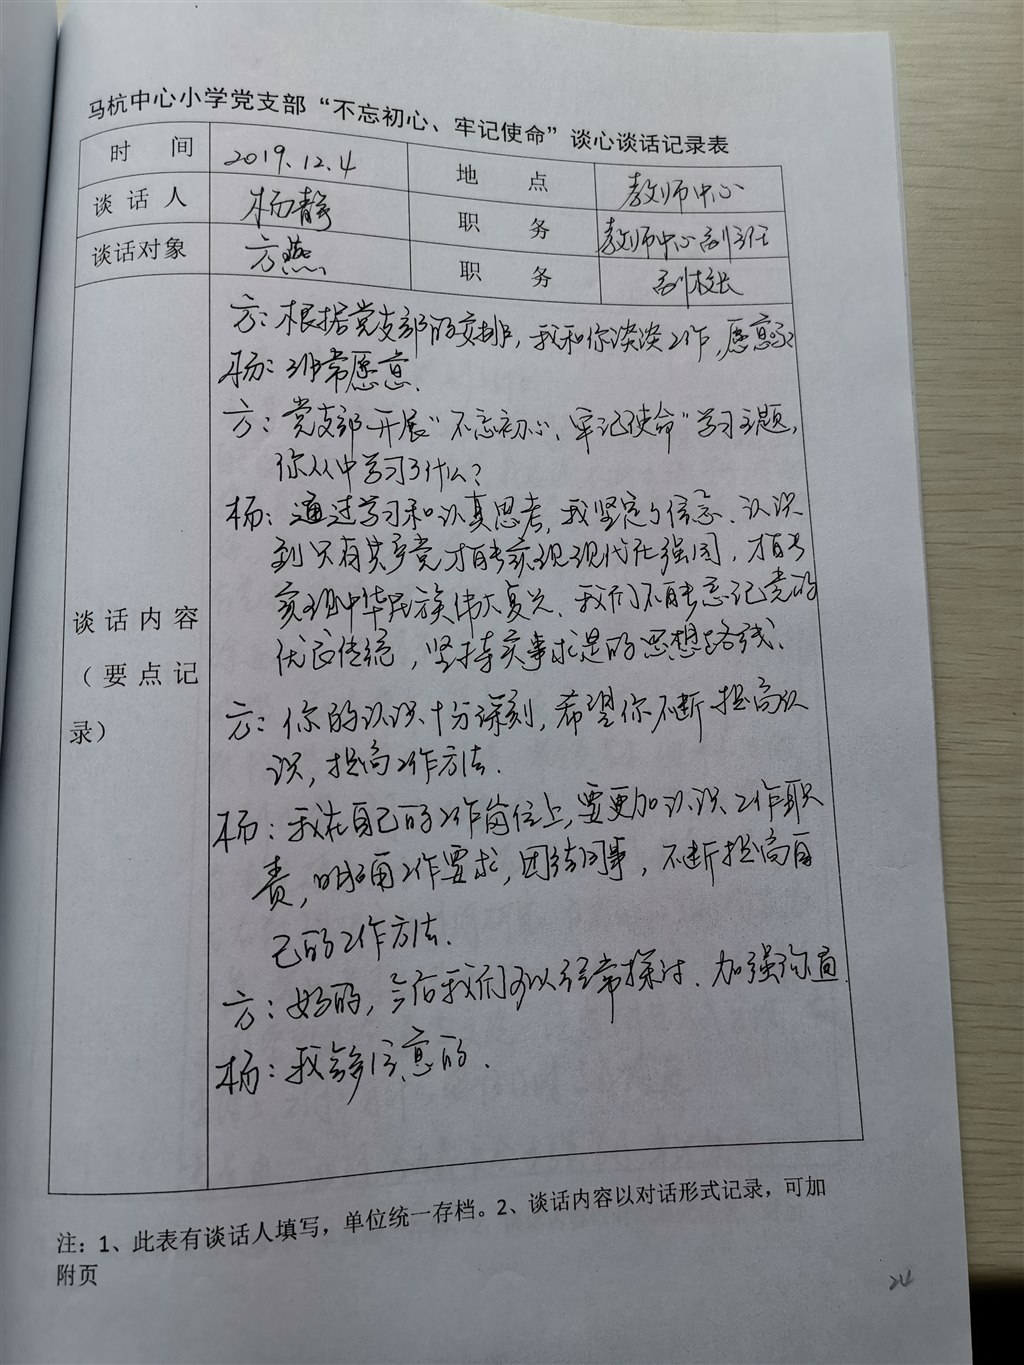 马杭中心小学党支部“不忘初心、牢记使命”谈心谈话记录表
时 间 2019.12.4 地 点 教师中心
谈 话 人 杨静 职 务 教师中心副主任
谈话对象 方燕 职 务 副校长
谈 话 内 容
（ 要 点 记
录）
方：根据党支部的安排，我和你谈谈工作，愿意
杨：非常愿意.
方：党支部开展“不忘初心、牢记使命”学习主题，
你从中学习了什么？
杨：通过学习和认真思考，我坚定了信念、认识
到只有共产党才能实现现代化强国，才能
实现中华民族伟大复兴、我们不能忘记党的
优良传统，坚持实事求是的思想路线.
方：你的认识十分深刻，希望你不断提高认
识，提高工作方法.
杨：我在自己的工作岗位上，要更加认识工作职
责，明确工作要求，团结同事，不断提高自
己的工作方法.
方：好的，今后我们可以经常探讨、加强沟通.
杨：我会多注意的.
注：1、此表有谈话人填写，单位统一存档。2、谈话内容以对话形式记录，可加
附页
24